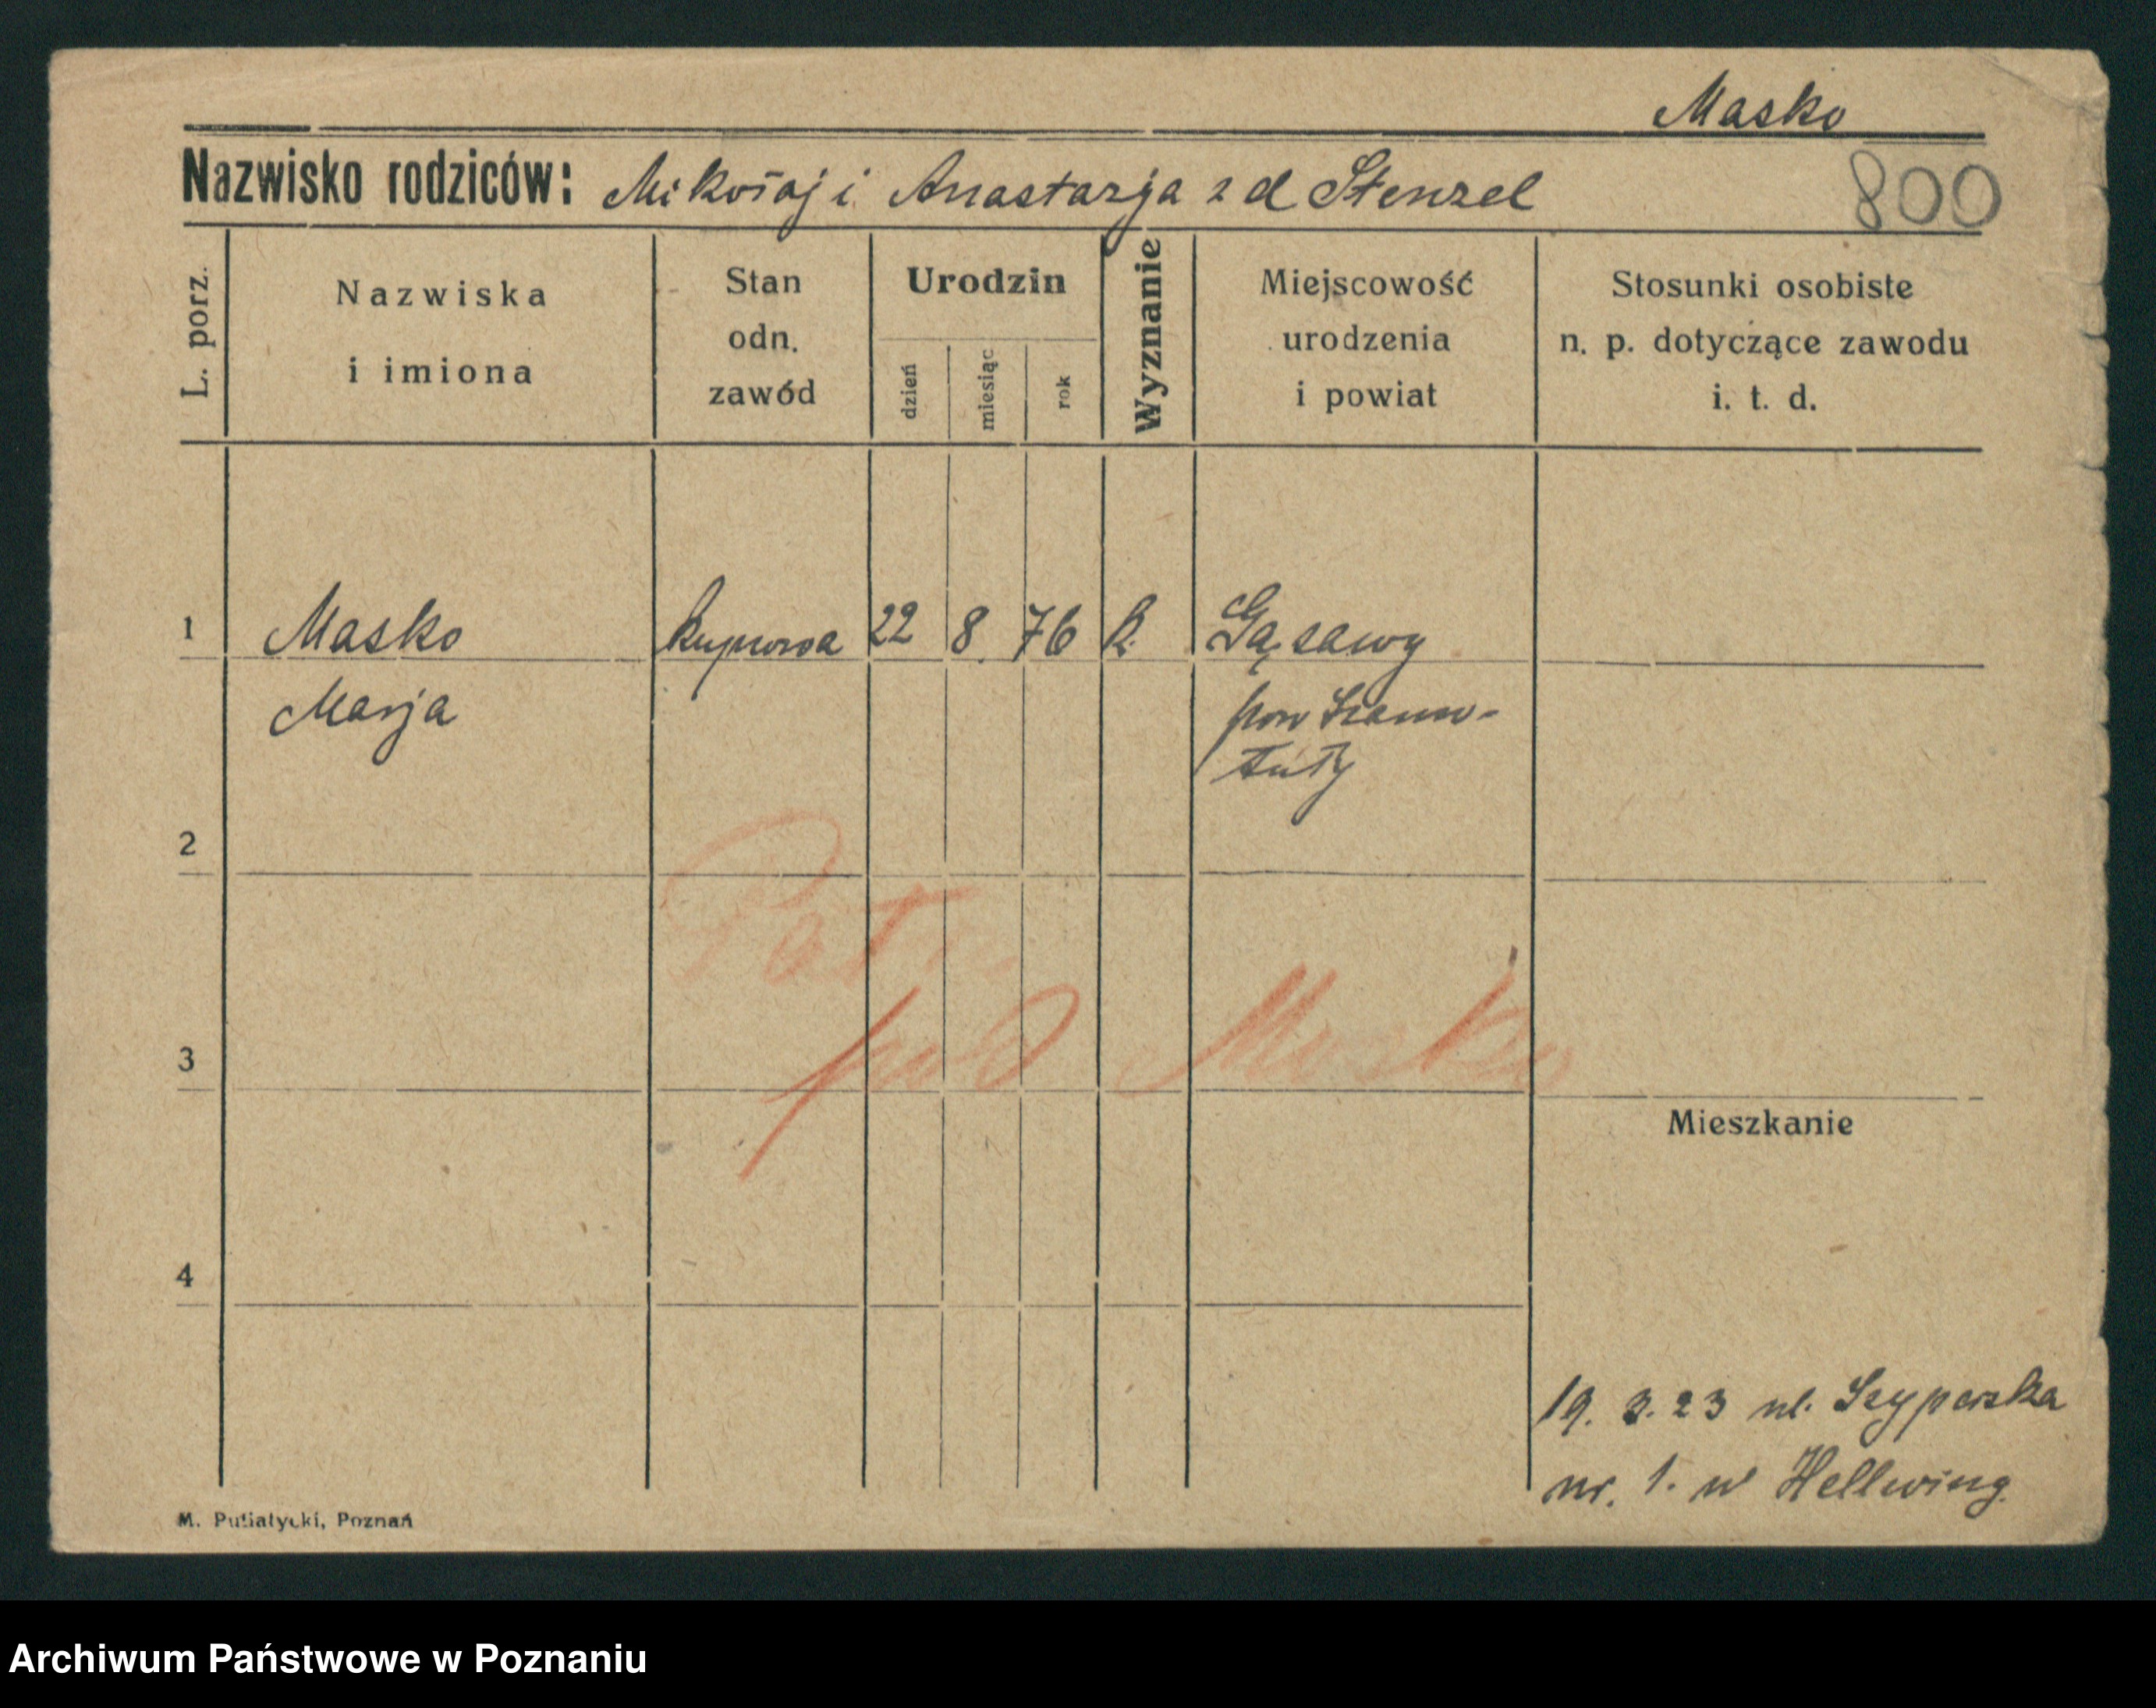 Masko
Nazwisko rodziców: Mikołaj i Anastazja z d Stenzel
800
L. porz.
Nazwiska
i imiona
Stan
odn.
zawód
Urodzin
dzień
miesiąc
rok
Wyznanie
Miejscowość
urodzenia
i powiat
Stosunki osobiste
n. p. dotyczące zawodu
i. t. d.
1 Masko kupcowa 22 8. 76 k. Gąsawy
Marja pow Szamo-
tuły
2
3
pod Masko
Mieszkanie
4
19. 3. 23 ul. Szyperska
nr. 1. w Hellwing.
M. Putiatycki, Poznań
Archiwum Państwowe w Poznaniu